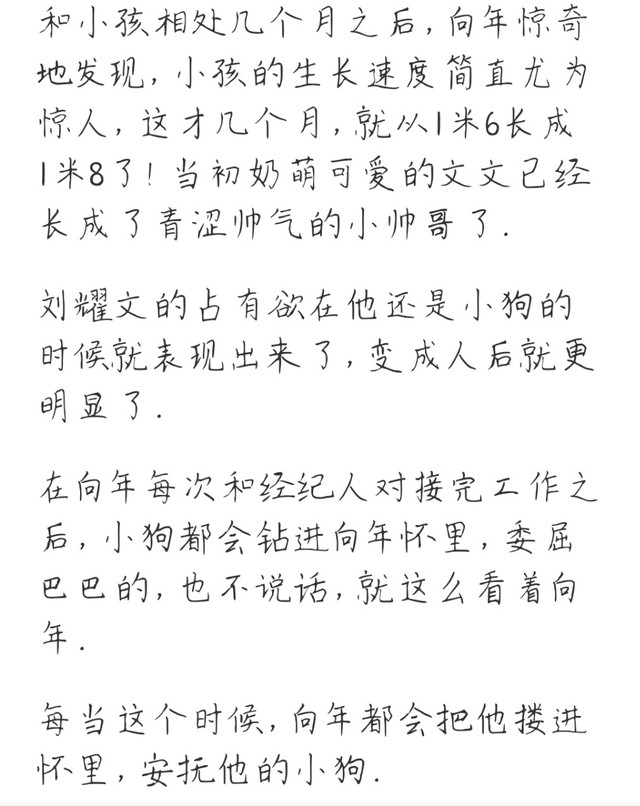 和小孩相处几个月之后,向年惊奇
地发现,小孩的生长速度简直尤为
惊人,这才几个月,就从1米6长成
1米8了!当初奶萌可爱的文文已经
长成了青涩帅气的小帅哥了.
刘耀文的占有欲在他还是小狗的
时候就表现出来了,变成人后就更
明显了.
在向年每次和经纪人对接完工作之
后,小狗都会钻进向年怀里,委屈
巴巴的,也不说话,就这么看着向
年.
每当这个时候,向年都会把他搂进
怀里,安抚他的小狗.